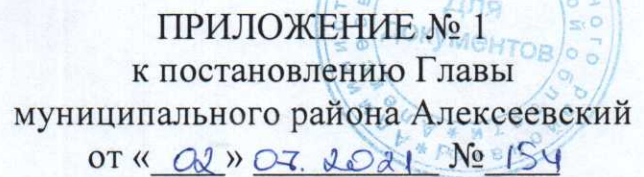 ПРИЛОЖЕНИЕ № 1
к постановлению Главы
муниципального района Алексеевский
от «02» 07. 2021 № 154
Для
документов